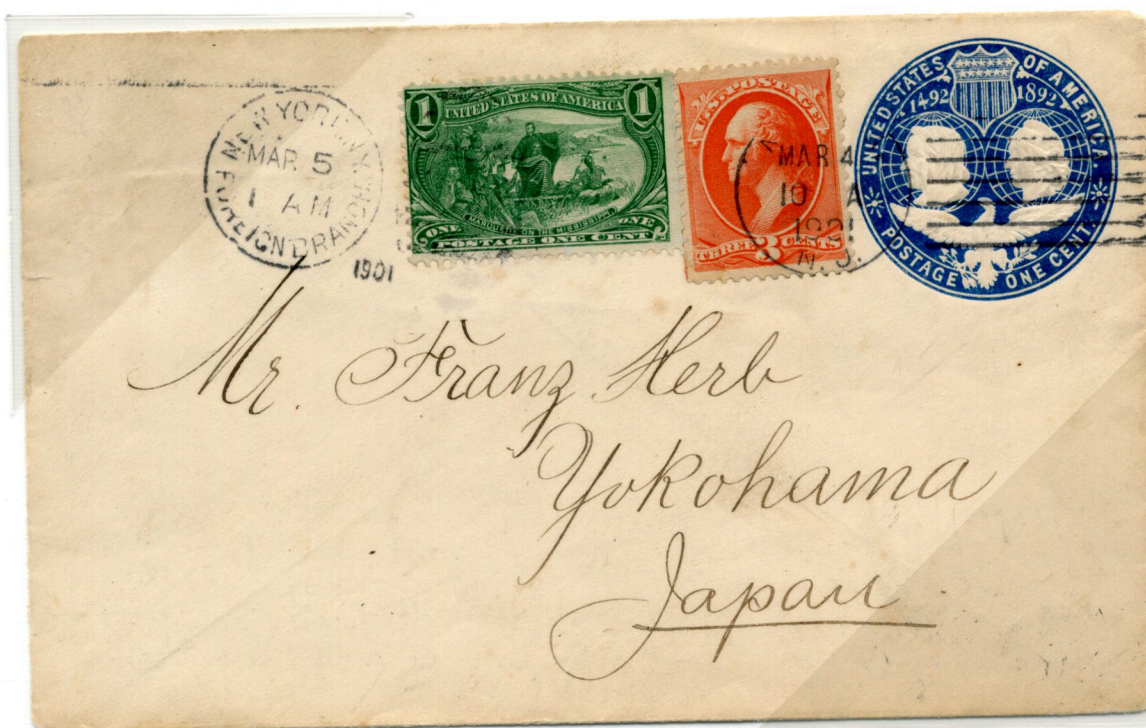 NEW YORK, N.Y.
MAR 5
1 AM
FOREIGN BRANCH
1901
1 UNITED STATES OF AMERICA 1
MARQUETTE ON THE MISSISSIPPI
ONE ONE
POSTAGE ONE CENT
U.S. POSTAGE
THREE 3 CENTS
MAR 4
10 A
1901
N. J.
UNITED STATES OF AMERICA
1492 1892
POSTAGE ONE CENT.
Mr. Franz Herb
Yokohama
Japan